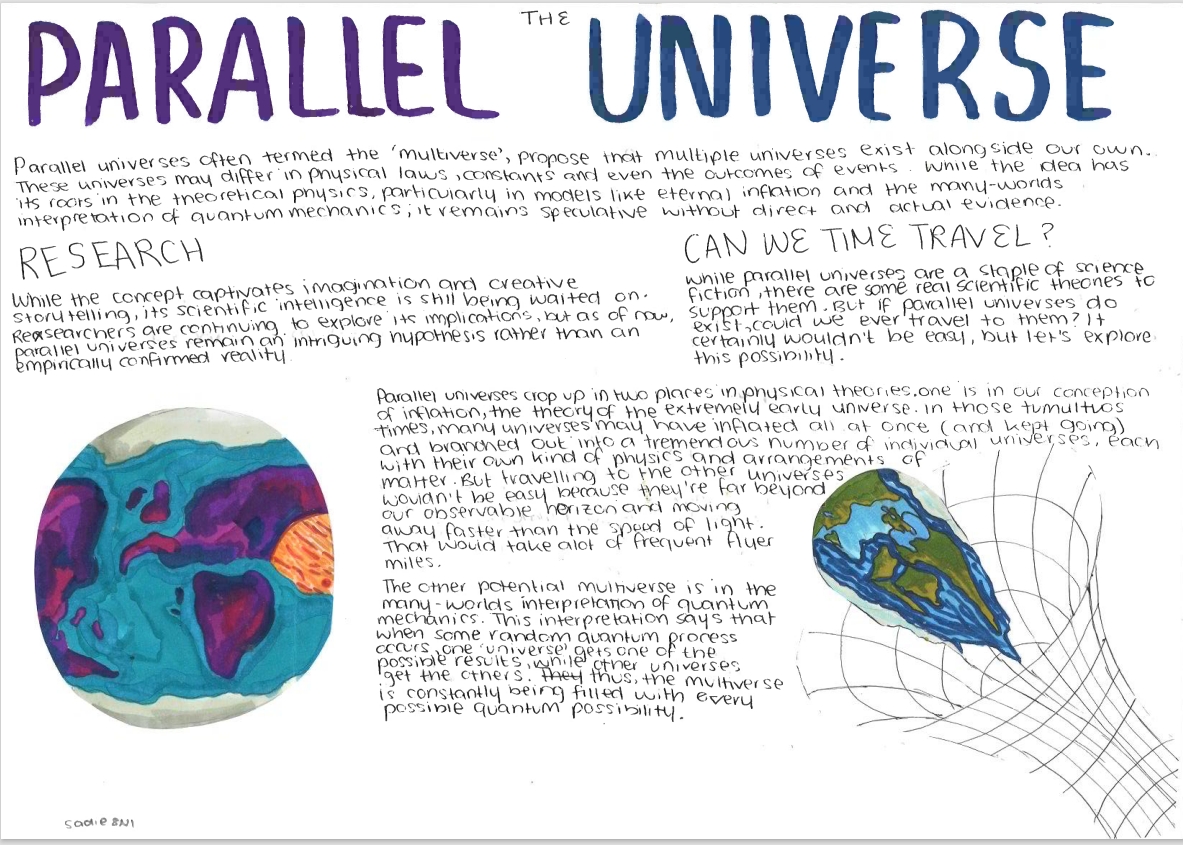 THE
PARALLEL UNIVERSE
Parallel universes often termed the 'multiverse', propose that multiple universes exist alongside our own..
These universes may differ in physical laws, constants and even the outcomes of events. While the idea has
its roots in the theoretical physics, particularly in models like eternal inflation and the many-worlds
interpretation of quantum mechanics; it remains speculative without direct and actual evidence.
RESEARCH
While the concept captivates imagination and creative
storytelling, its scientific intelligence is still being waited on.
Reasearchers are continuing to explore its implications, but as of now,
parallel universes remain an intriguing hypothesis rather than an
empirically confirmed reality.
CAN WE TIME TRAVEL?
While parallel universes are a staple of science
fiction, there are some real scientific theories to
support them. But if parallel universes do
exist, could we ever travel to them? It
certainly wouldn't be easy, but let's explore
this possibility.
Parallel universes crop up in two places in physical theories. one is in our conception
of inflation, the theory of the extremely early universe. In those tumultuos
times, many universes may have inflated all at once (and kept going)
and branched out into a tremendous number of individual universes, each
with their own kind of physics and arrangements of
matter. But travelling to the other universes
wouldn't be easy because they're far beyond
our observable horizon and moving
away faster than the speed of light.
That would take alot of frequent flyer
miles.
The other potential multiverse is in the
many-worlds interpretation of quantum
mechanics. This interpretation says that
when some random quantum process
occurs, one 'universe' gets one of the
possible results, while other universes
get the others. they thus, the multiverse
is constantly being filled with every
possible quantum possibility.
Sadie 8N1